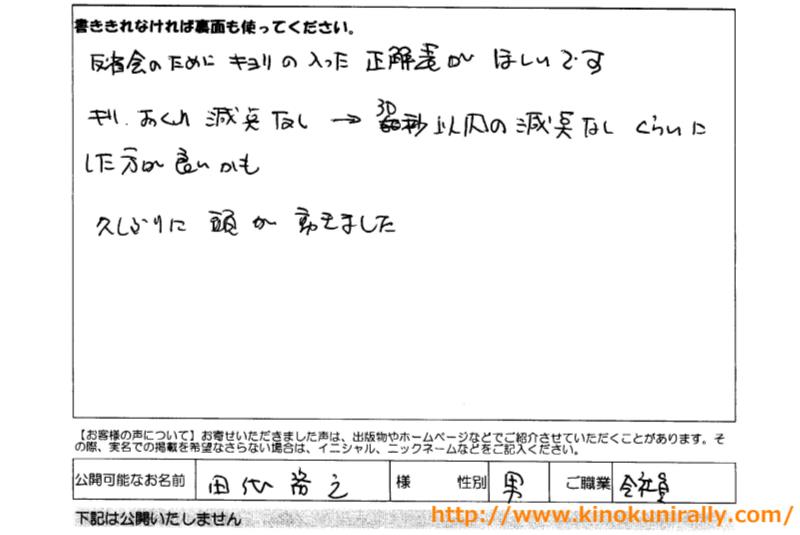 書ききれなければ裏面も使ってください。
反省会のために キョリの入った 正解表が ほしいです
おくれ 減点なし → 30秒以内の減点なし くらいに
した方が良いかも
久しぶりに 頭が 動きました
【お客様の声について】お寄せいただきました声は、出版物やホームページなどでご紹介させていただくことがあります。そ
の際、実名での掲載を希望なさらない場合は、イニシャル、ニックネームなどをご記入ください。
公開可能なお名前 田代 啓之 様 性別 男 ご職業 会社員
下記は公開いたしません
http://www.kinokunirally.com/